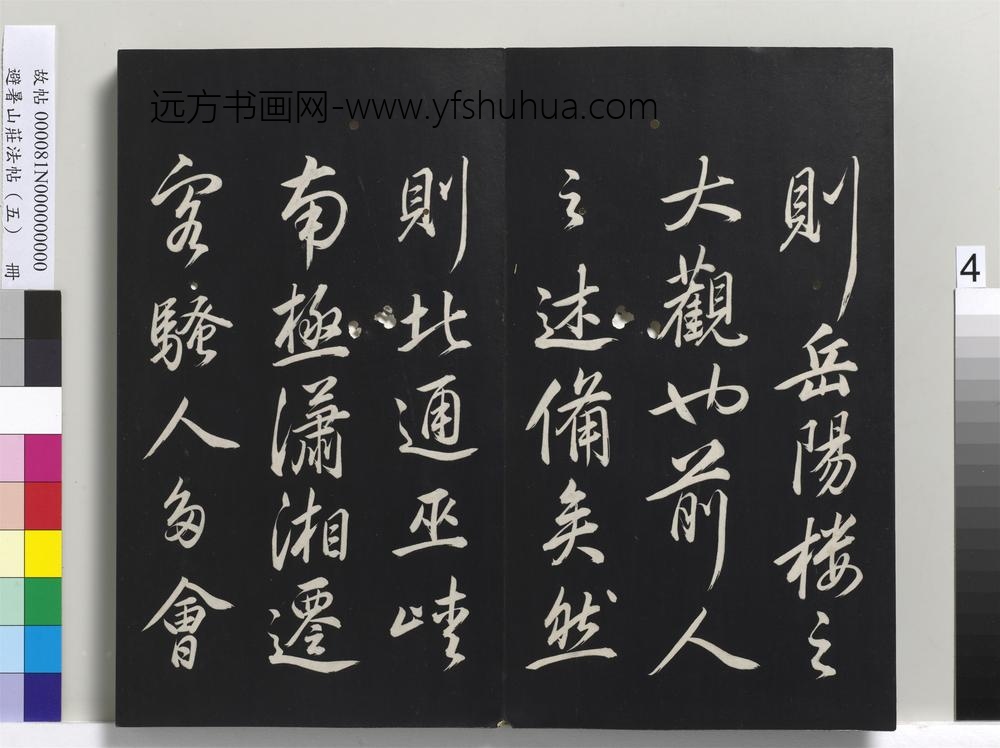 远方书画网-www.yfshuhua.com
則岳陽楼之
大觀也前人
之述備矣然
則北通巫峽
南極瀟湘遷
客騷人多會
故帖 000081N000000000
避暑山莊法帖(五) 冊
4